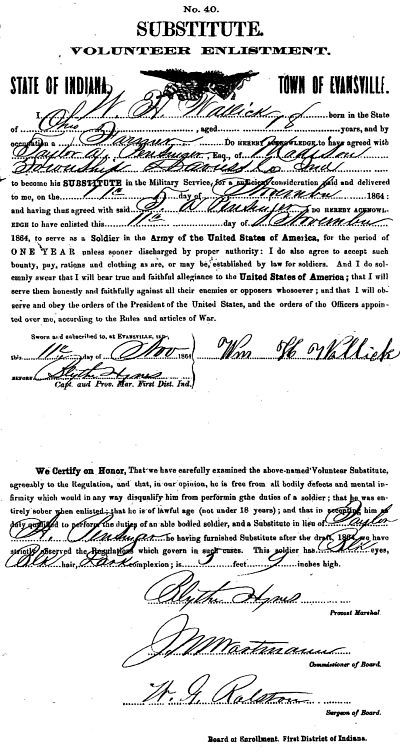 No. 40.
SUBSTITUTE.
VOLUNTEER ENLISTMENT.
STATE OF INDIANA, TOWN OF EVANSVILLE.
I, W. H. Wallick born in the State
of Ohio, aged 18 years, and by
occupation a Farmer Do HEREBY ACKNOWLEDGE to have agreed with
Taylor A., Esq., of Madison
Township Ind
to become his SUBSTITUTE in the Military Service, for a sufficient consideration paid and delivered
to me, on the 11th day of November 1864:
and having thus agreed with said A DO HEREBY ACKNOWL-
EDGE to have enlisted this 11th day of November
1864, to serve as a Soldier in the Army of the United States of America, for the period of
ONE YEAR unless sooner discharged by proper authority: I do also agree to accept such
bounty, pay, rations and clothing as are, or may be, established by law for soldiers. And I do sol-
emnly swear that I will bear true and faithful allegiance to the United States of America; that I will
serve them honestly and faithfully against all their enemies or opposers whosoever; and that I will ob-
serve and obey the orders of the President of the United States, and the orders of the Officers appoin-
ted over me, according to the Rules and articles of War.
Sworn and subscribed to, at EVANSVILLE, IND.,
this 11th day of Nov 1864 Wm H Wallick
BEFORE Blythe Hynes
Capt. and Prov. Mar. First Dist. Ind.
We Certify on Honor, That we have carefully examined the above-named Volunteer Substitute,
agreeably to the Regulation, and that, in our opinion, he is free from all bodily defects and mental in-
firmity which in any way disqualify him from performin gthe duties of a soldier; that he was en-
tirely sober when enlisted; that he is of lawful age (not under 18 years); and that in accepting him as
duly qualified to perform the duties of an able bodied soldier, and a Substitute in lieu of Taylor
A. he having furnished Substitute after the draft, 1864, we have
strictly observed the Regulations which govern in such cases. This soldier has Blk eyes,
Blk hair, Dark complexion; is 5 feet 9 inches high.
Blythe Hynes
Provost Marshal.
J. W. Wartmann
Commissioner of Board.
W. G. Ralston
Surgeon of Board.
Board of Enrollment. First District of Indiana.